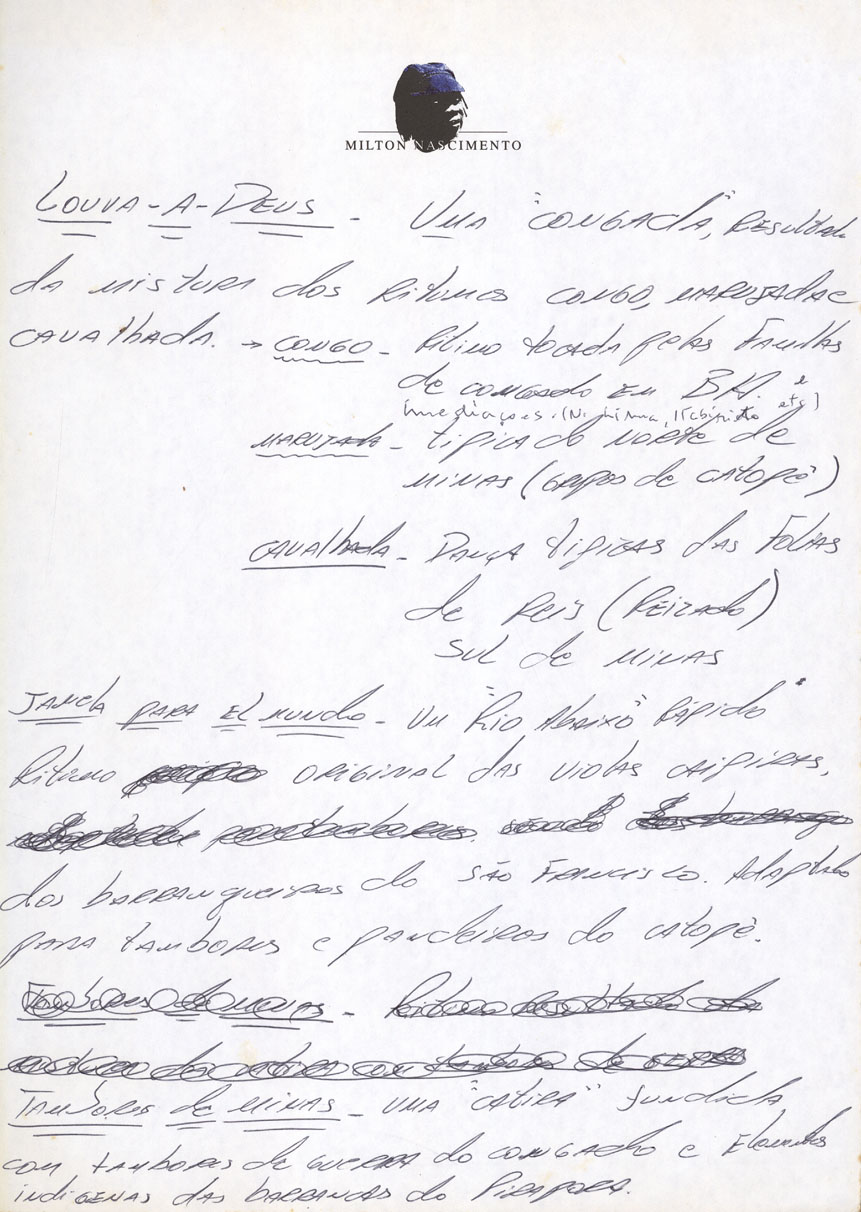 MILTON NASCIMENTO
LOUVA-A-DEUS - UMA "CONGADA", RESULTADO
da MISTURA dos Ritmos CONGO, MARUJADA e
CAVALHADA. → CONGO - Ritmo tocado pelas Famílias
de CONGADO EM B.H. e
imediações. (N. Lima, Itabirito etc)
MARUJADA - típica do NORTE de
MINAS (GRUPOS de CATOPÊ)
CAVALHADA - DANÇA típicas das FOLIAS
de REIS (REIZADO)
SUL de MINAS
JANELA PARA EL MUNDO - UM "RIO ABAIXO" RÁPIDO
Ritmo ORIGINAL das VIOLAS CAIPIRAS,
dos BARRANQUEIROS do SÃO FRANCISCO. Adaptado
para tambores e pandeiros do CATOPÊ.
TAMBORES DE MINAS - UMA "CATIRA" fundida
com tambores de GUERRA do CONGADO e Elementos
INDÍGENAS das BARRANCAS do PIRAPORA.